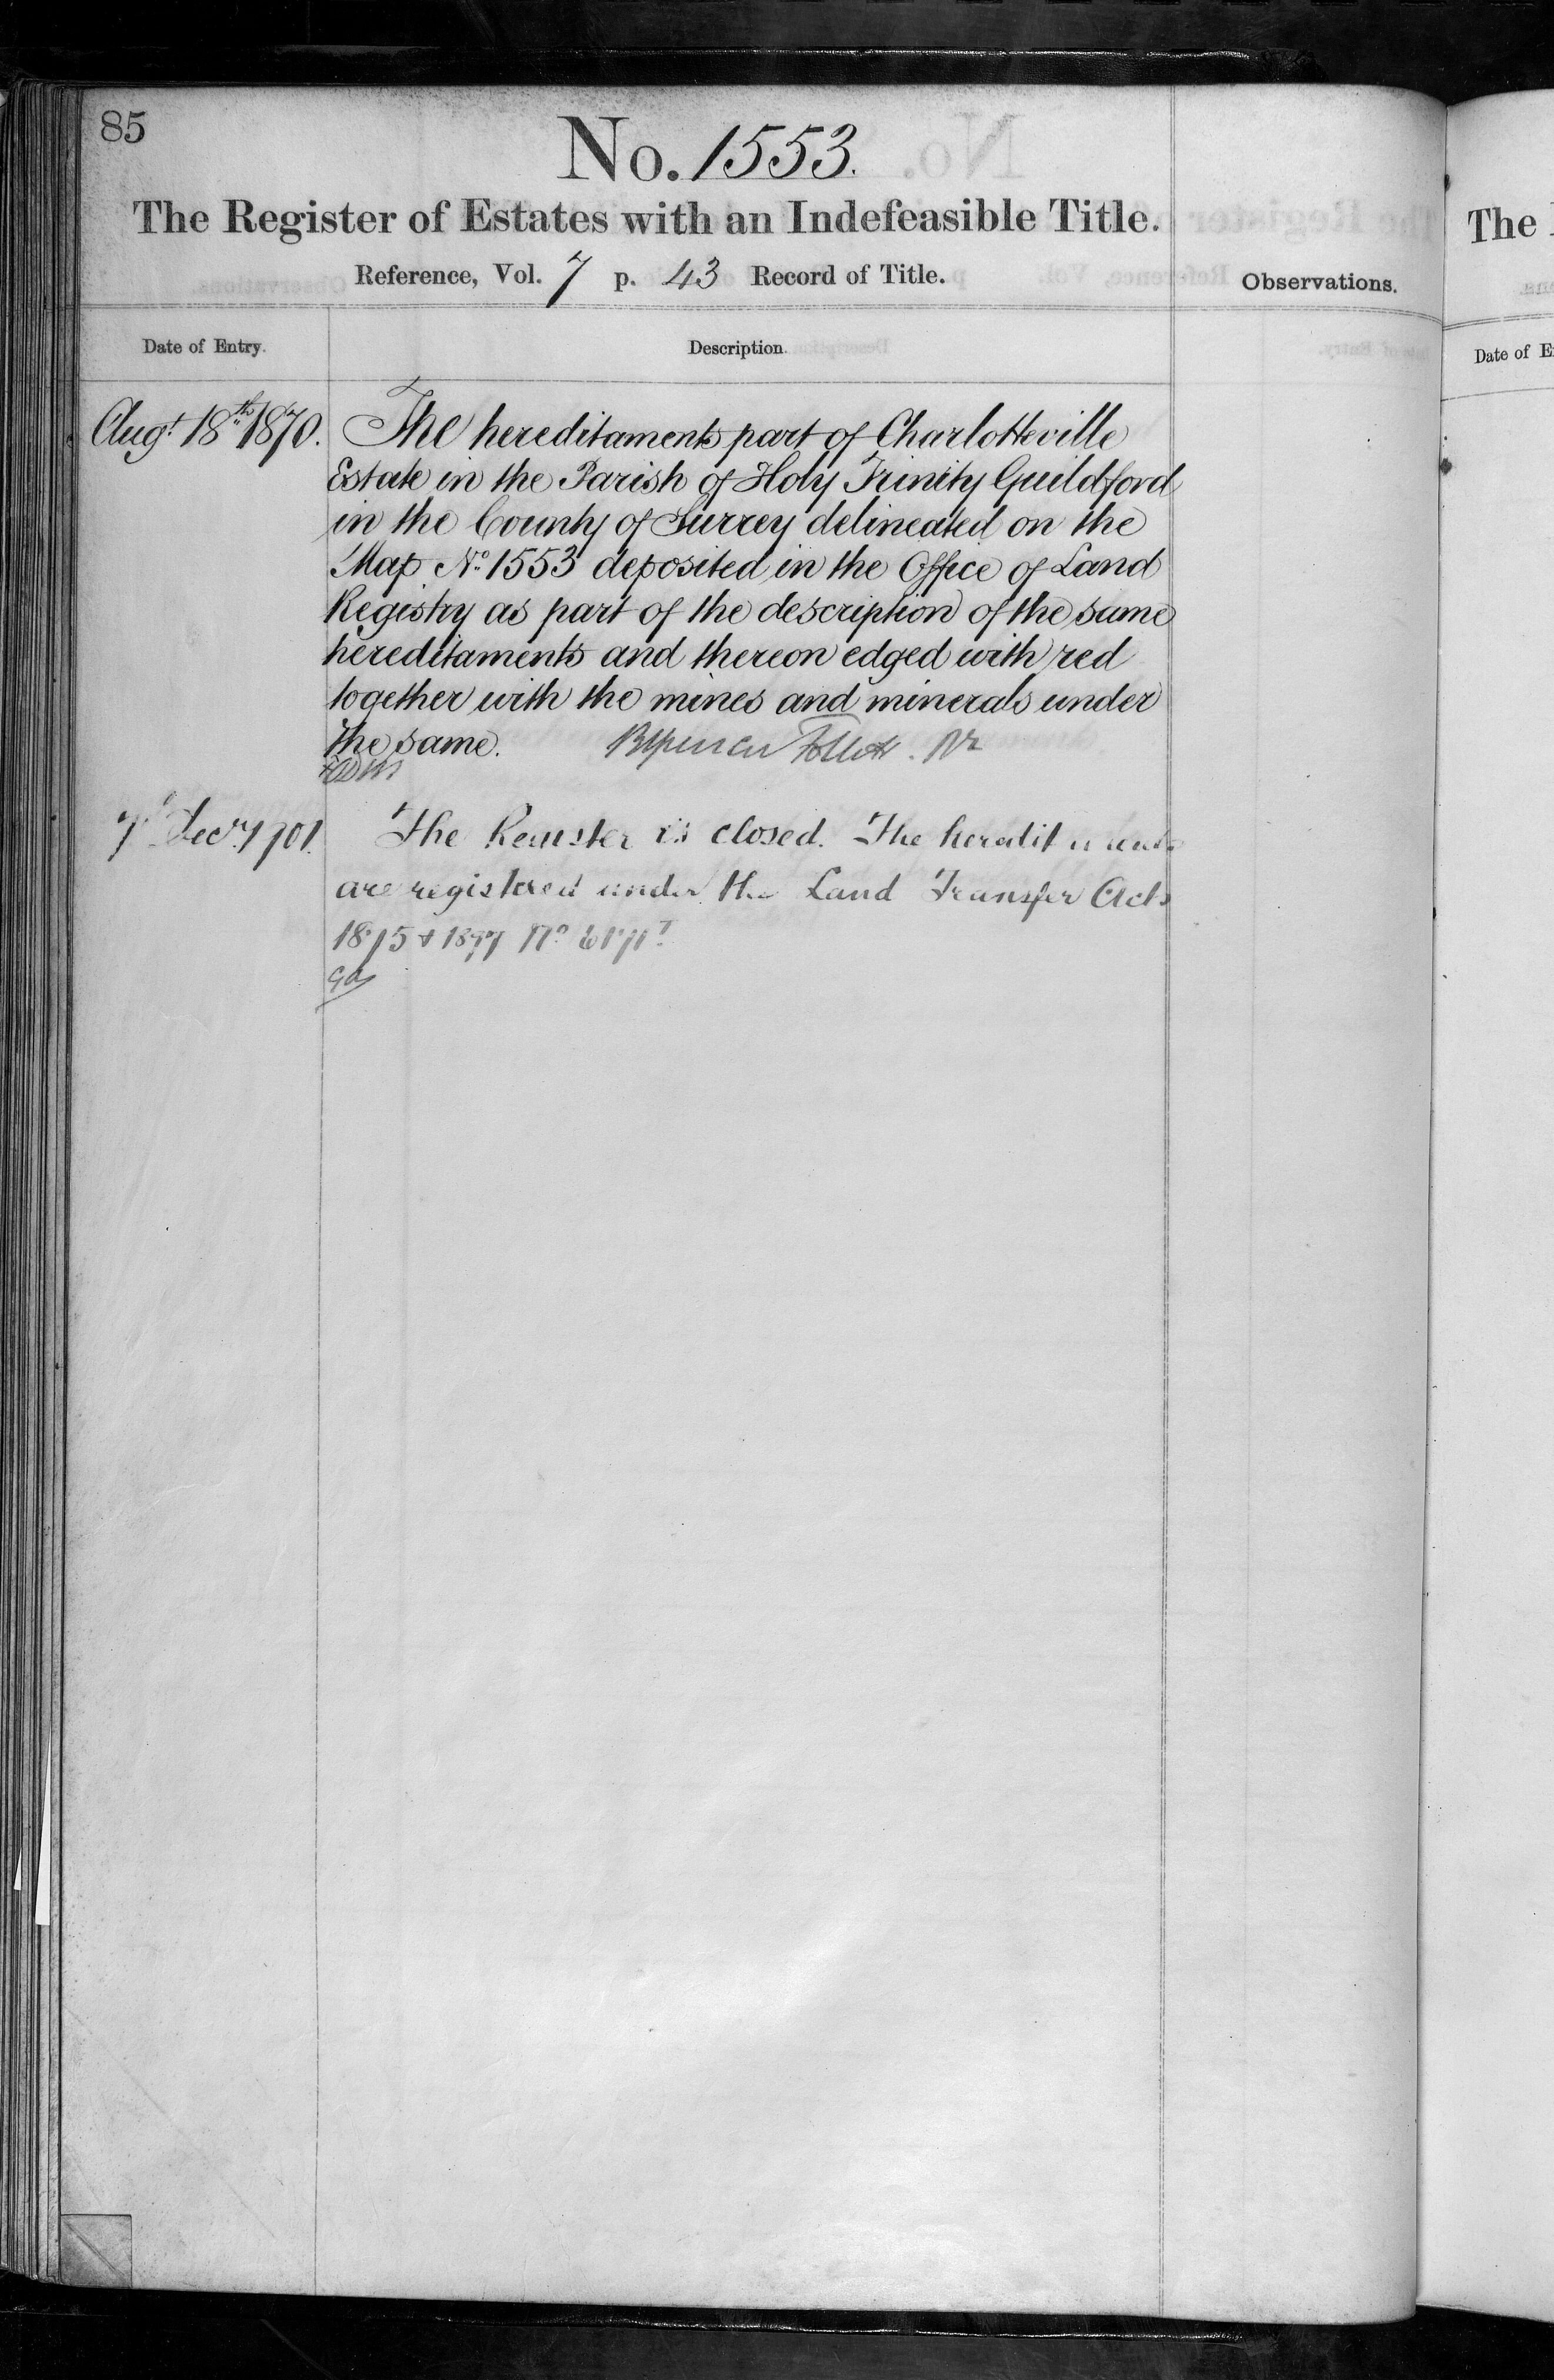 85
No. 1553.
The Register of Estates with an Indefeasible Title.
Reference, Vol. 7 p. 43 Record of Title.
Observations.
Date of Entry.
Description.
Augt. 18th 1870.
The hereditaments part of Charlotteville
Estate in the Parish of Holy Trinity Guildford
in the County of Surrey delineated on the
Map No. 1553 deposited in the Office of Land
Registry as part of the description of the same
hereditaments and thereon edged with red
together with the mines and minerals under
the same. Follett
7th Decr. 1901.
The Register is closed. The hereditaments
are registered under the Land Transfer Acts
1875 & 1897 No.
The
Date of E